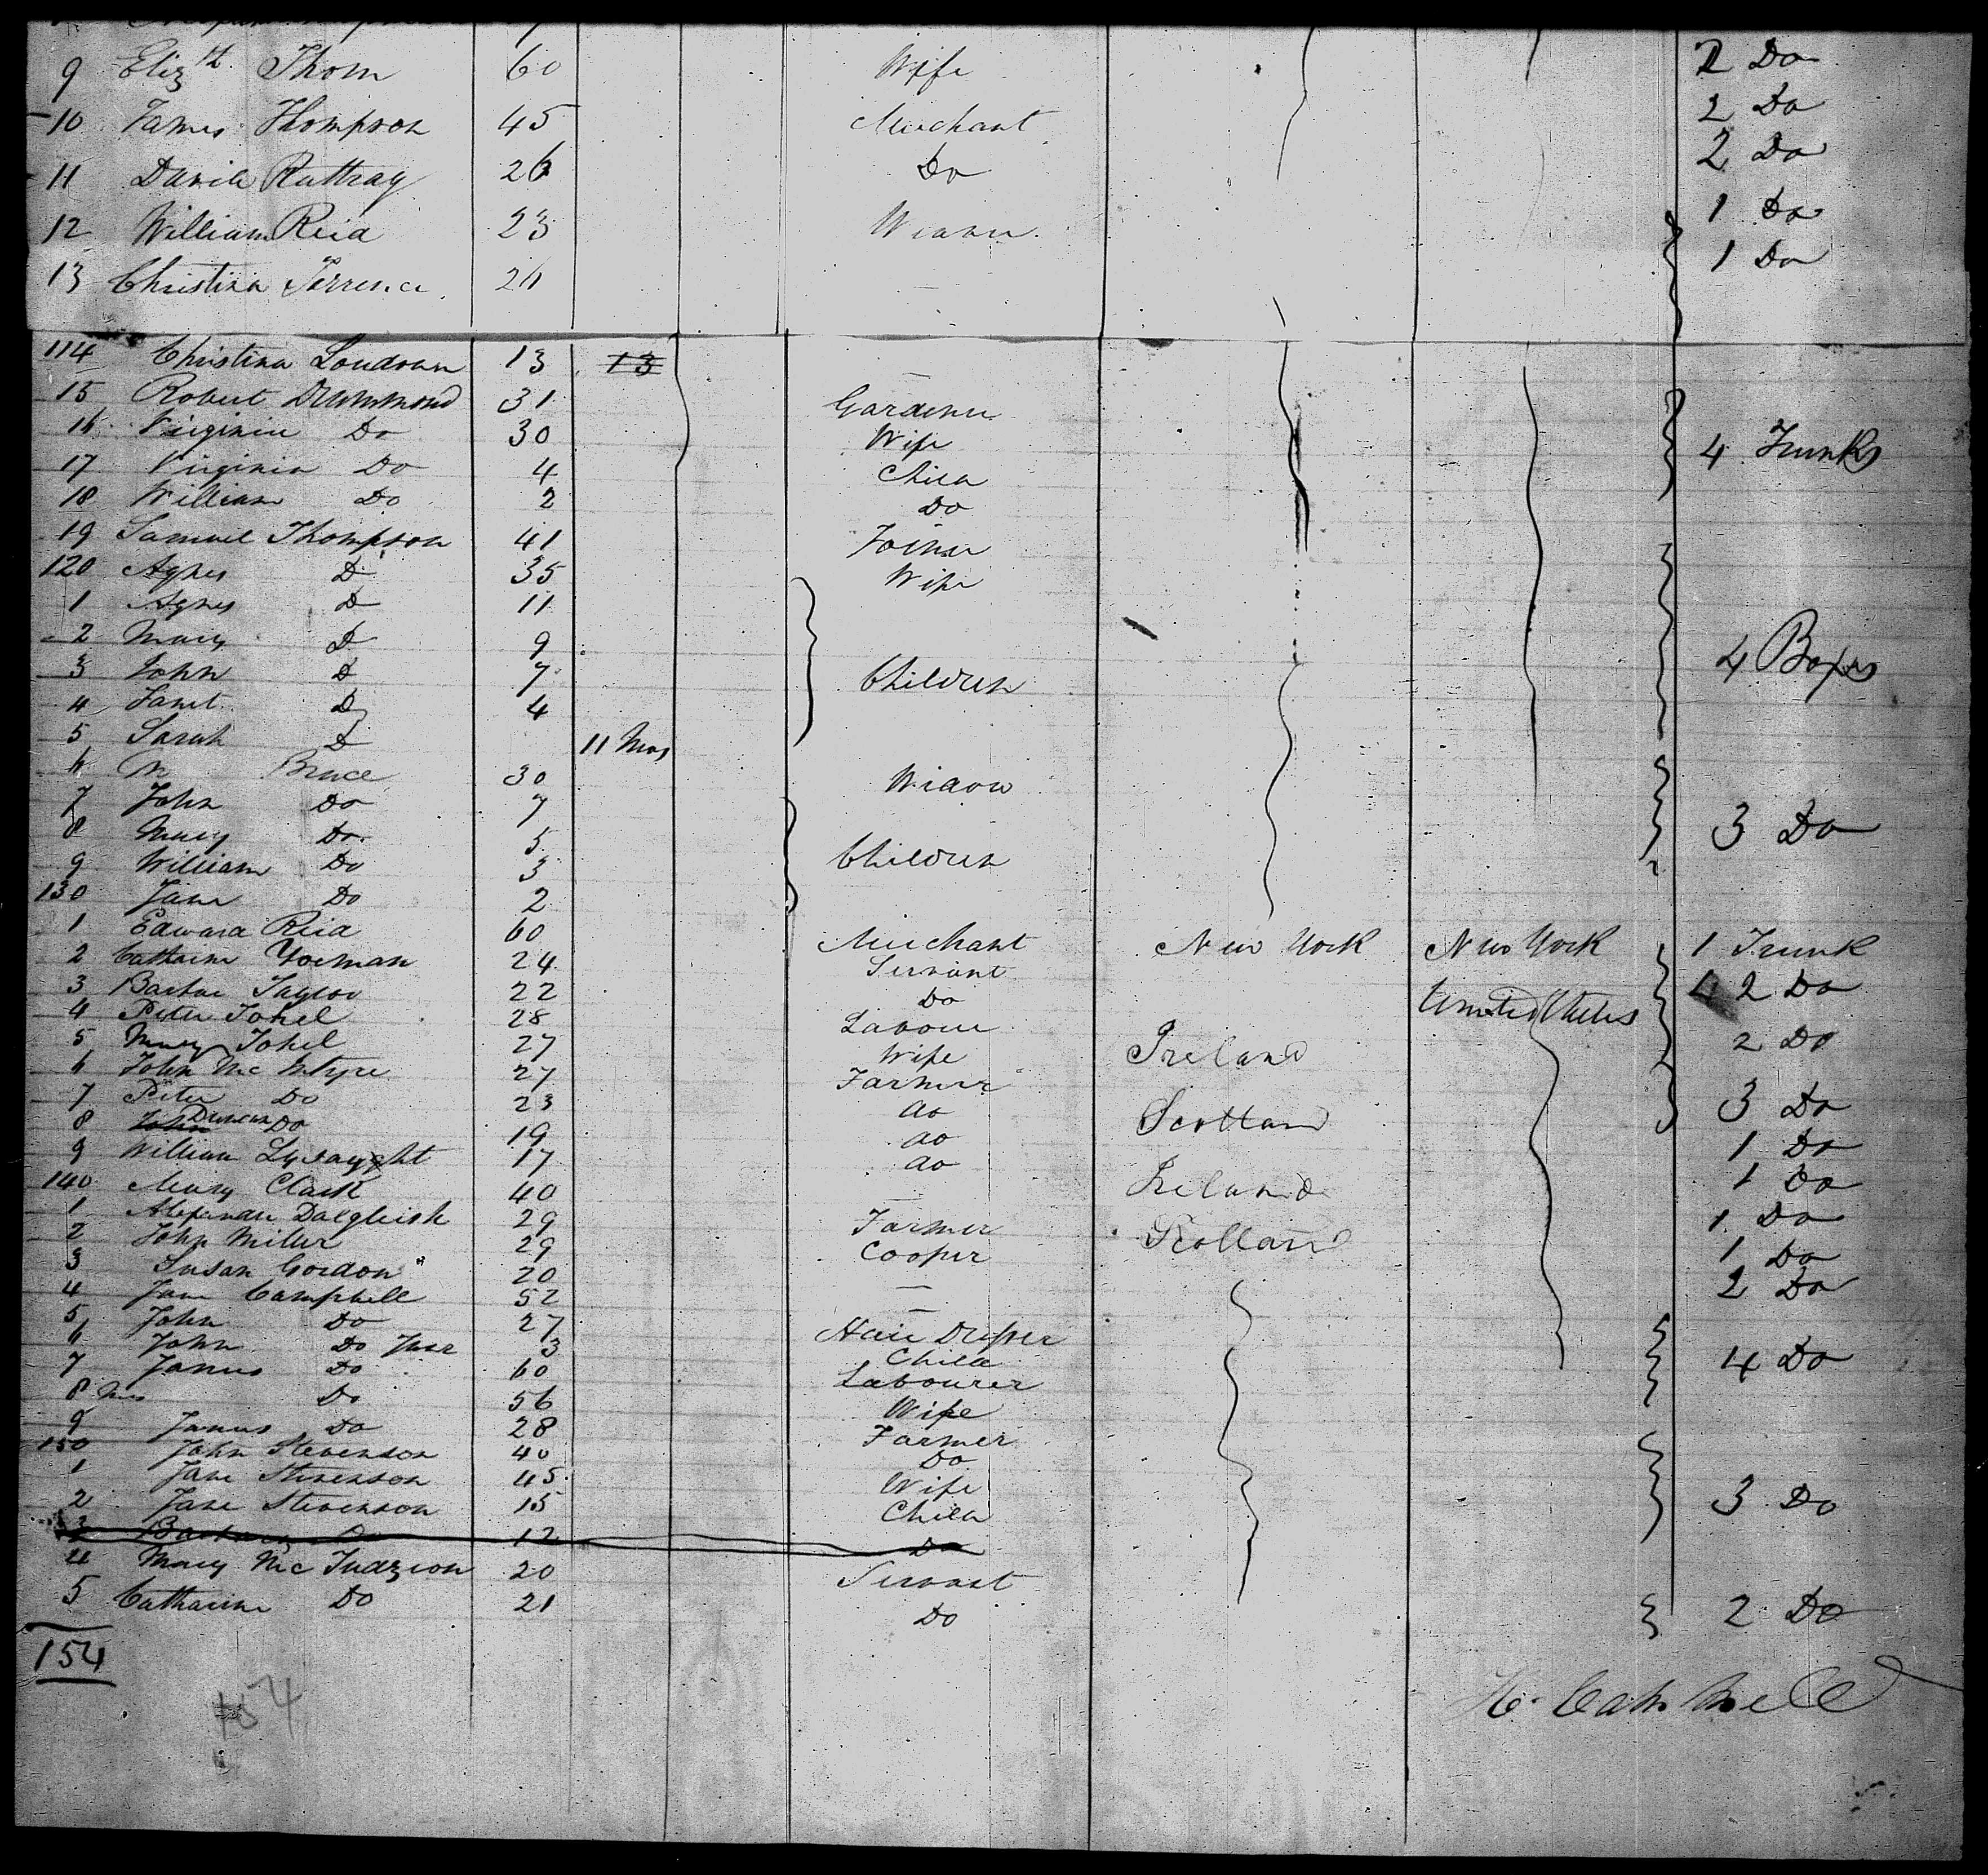 9 Eliz.th Thom 60 Wife 2 Do
10 James Thompson 45 Merchant 2 Do
11 David Rattray 26 Do 2 Do
12 William Reid 23 Weaver 1 Do
13 Christina 26 — 1 Do
114 Christina Loudoun 13 13 —
15 Robert Drummond 31 Gardener
16 Virginia Do 30 Wife 4 Trunks
17 Virginia Do 4 Child
18 William Do 2 Do
19 Samuel Thompson 41 Joiner
120 Agnes D 35 Wife
1 Agnes D 11
2 Mary D 9
3 John D 7 Children 4 Boxes
4 Janet D 4
5 Sarah D 11 Mos
6 M Bruce 30 Widow
7 John Do 7 3 Do
8 Mary Do 5
9 William Do 3 Children
130 Jane Do 2
1 Edward Reid 60 Merchant New York New York 1 Trunk
2 Catharine Yoeman 24 Servant
3 Barbar Taylor 22 Do United States 2 Do
4 Peter Tohel 28 Labour
5 Mary Tohel 27 Wife Ireland 2 Do
6 John Mc Intyre 27 Farmer
7 Peter Do 23 do Scotland 3 Do
8 John Duncan Do 19 do
9 William 17 do 1 Do
140 Mary Clark 40 — Ireland 1 Do
1 Alexander Dalgleish 29 Farmer Scotland 1 Do
2 John Miller 29 Cooper 1 Do
3 Susan Gordon 20 — 2 Do
4 Jane Campbell 52 —
5 John Do 27 Hair Dresser
6 John Do Junr 3 Child 4 Do
7 James Do 60 Labourer
8 Mrs Do 56 Wife
9 James Do 28 Farmer
150 John Stevenson 40 Do
1 Jane Stevenson 45 Wife 3 Do
2 Jane Stevenson 15 Child
3 Barbara Do 12 Do
4 Mary Mc 20 Servant
5 Catharine Do 21 Do 2 Do
154
154